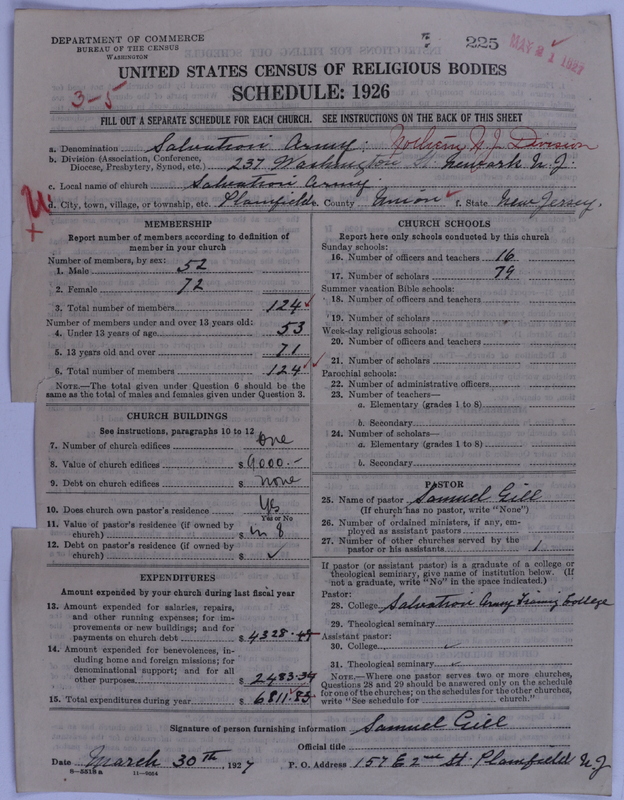 DEPARTMENT OF COMMERCE
BUREAU OF THE CENSUS
WASHINGTON
225
MAY 21 1927
UNITED STATES CENSUS OF RELIGIOUS BODIES
SCHEDULE: 1926
3-5
FILL OUT A SEPARATE SCHEDULE FOR EACH CHURCH. SEE INSTRUCTIONS ON THE BACK OF THIS SHEET
a. Denomination Salvation Army. Northern N.J. Division
b. Division (Association, Conference, Diocese, Presbytery, Synod, etc.) 237 Washington St. Newark N.J.
c. Local name of church Salvation Army
d. City, town, village, or township, etc. Plainfield. County Union f. State New Jersey.
MEMBERSHIP
Report number of members according to definition of member in your church
Number of members, by sex:
1. Male 52
2. Female 72
3. Total number of members 124
Number of members under and over 13 years old:
4. Under 13 years of age 53
5. 13 years old and over 71
6. Total number of members 124
NOTE.—The total given under Question 6 should be the same as the total of males and females given under Question 3.
CHURCH BUILDINGS
See instructions, paragraphs 10 to 12
7. Number of church edifices One
8. Value of church edifices $ 9000.-
9. Debt on church edifices $ None
10. Does church own pastor's residence Yes
Yes or No
11. Value of pastor's residence (if owned by church) $ in 8
12. Debt on pastor's residence (if owned by church) $
EXPENDITURES
Amount expended by your church during last fiscal year
13. Amount expended for salaries, repairs, and other running expenses; for improvements or new buildings; and for payments on church debt $ 4328.49
14. Amount expended for benevolences, including home and foreign missions; for denominational support; and for all other purposes $ 2483.34
15. Total expenditures during year $ 6811.83
CHURCH SCHOOLS
Report here only schools conducted by this church
Sunday schools:
16. Number of officers and teachers 16
17. Number of scholars 79
Summer vacation Bible schools:
18. Number of officers and teachers
19. Number of scholars
Week-day religious schools:
20. Number of officers and teachers
21. Number of scholars
Parochial schools:
22. Number of administrative officers
23. Number of teachers—
a. Elementary (grades 1 to 8)
b. Secondary
24. Number of scholars—
a. Elementary (grades 1 to 8)
b. Secondary
PASTOR
25. Name of pastor Samuel Gill
(If church has no pastor, write "None")
26. Number of ordained ministers, if any, employed as assistant pastors
27. Number of other churches served by the pastor or his assistants 1
If pastor (or assistant pastor) is a graduate of a college or theological seminary, give name of institution below. (If not a graduate, write "No" in the space indicated.)
Pastor:
28. College Salvation Army Training College
29. Theological seminary
Assistant pastor:
30. College
31. Theological seminary
NOTE.—Where one pastor serves two or more churches, Questions 28 and 29 should be answered only on the schedule for one of the churches; on the schedules for the other churches, write "See schedule for church."
Signature of person furnishing information Samuel Gill
Official title
Date March 30th, 1927 P. O. Address 157 E 2nd St. Plainfield N J
8-5518a 11-9554